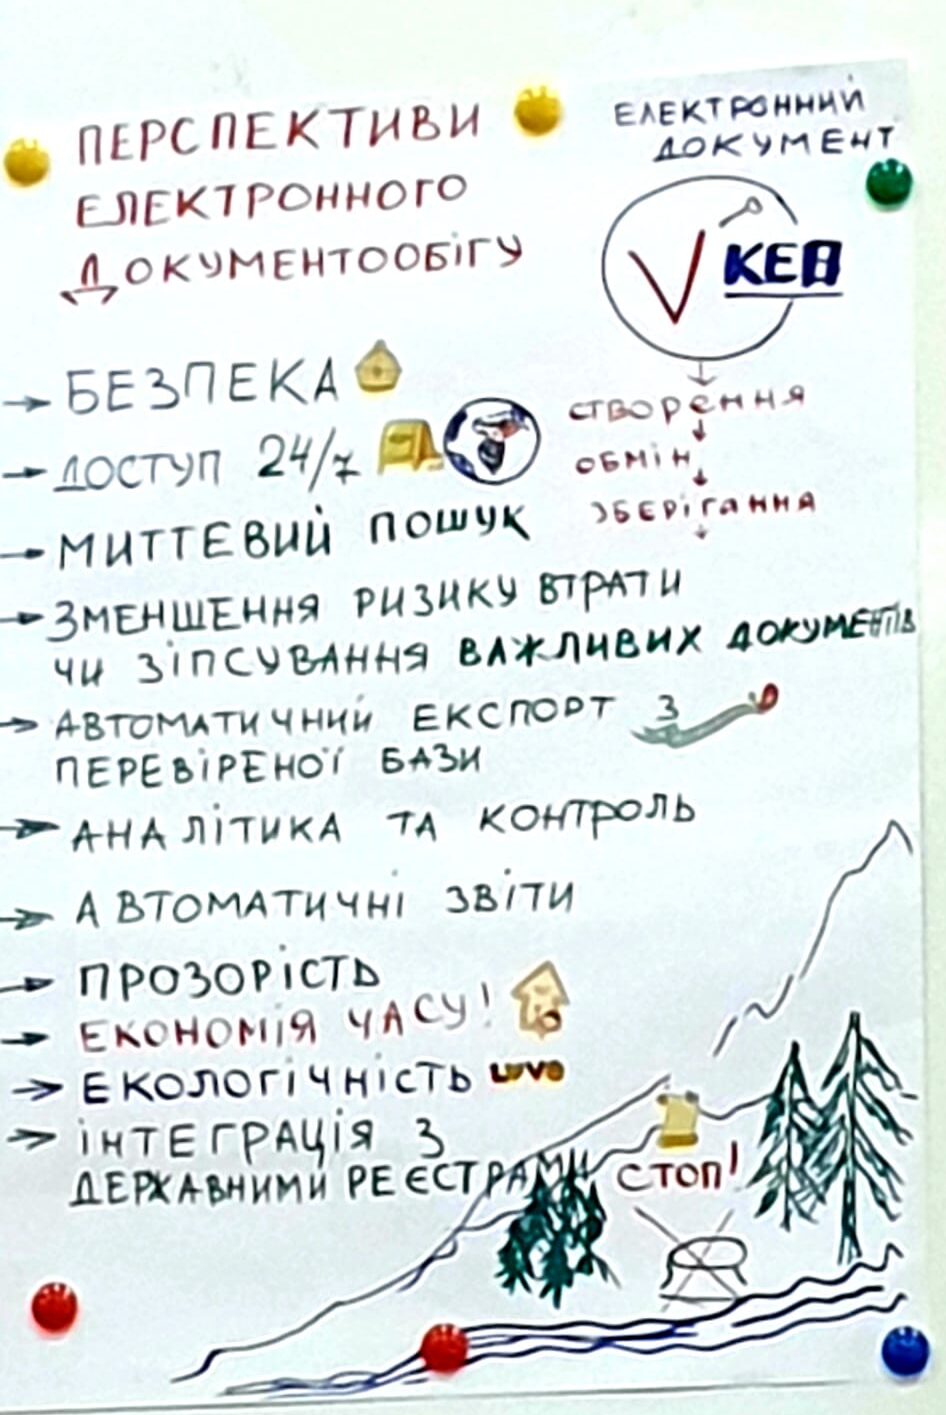 ПЕРСПЕКТИВИ
ЕЛЕКТРОННОГО
ДОКУМЕНТООБІГУ
ЕЛЕКТРОННИЙ
ДОКУМЕНТ
КЕП
створення
обмін
зберігання
→ БЕЗПЕКА
→ ДОСТУП 24/7
→ МИТТЕВИЙ ПОШУК
→ ЗМЕНШЕННЯ РИЗИКУ ВТРАТИ
ЧИ ЗІПСУВАННЯ ВАЖЛИВИХ ДОКУМЕНТІВ
→ АВТОМАТИЧНИЙ ЕКСПОРТ З
ПЕРЕВІРЕНОЇ БАЗИ
→ АНАЛІТИКА ТА КОНТРОЛЬ
→ АВТОМАТИЧНІ ЗВІТИ
→ ПРОЗОРІСТЬ
→ ЕКОНОМІЯ ЧАСУ!
→ ЕКОЛОГІЧНІСТЬ
→ ІНТЕГРАЦІЯ З
ДЕРЖАВНИМИ РЕЄСТРАМИ
СТОП!